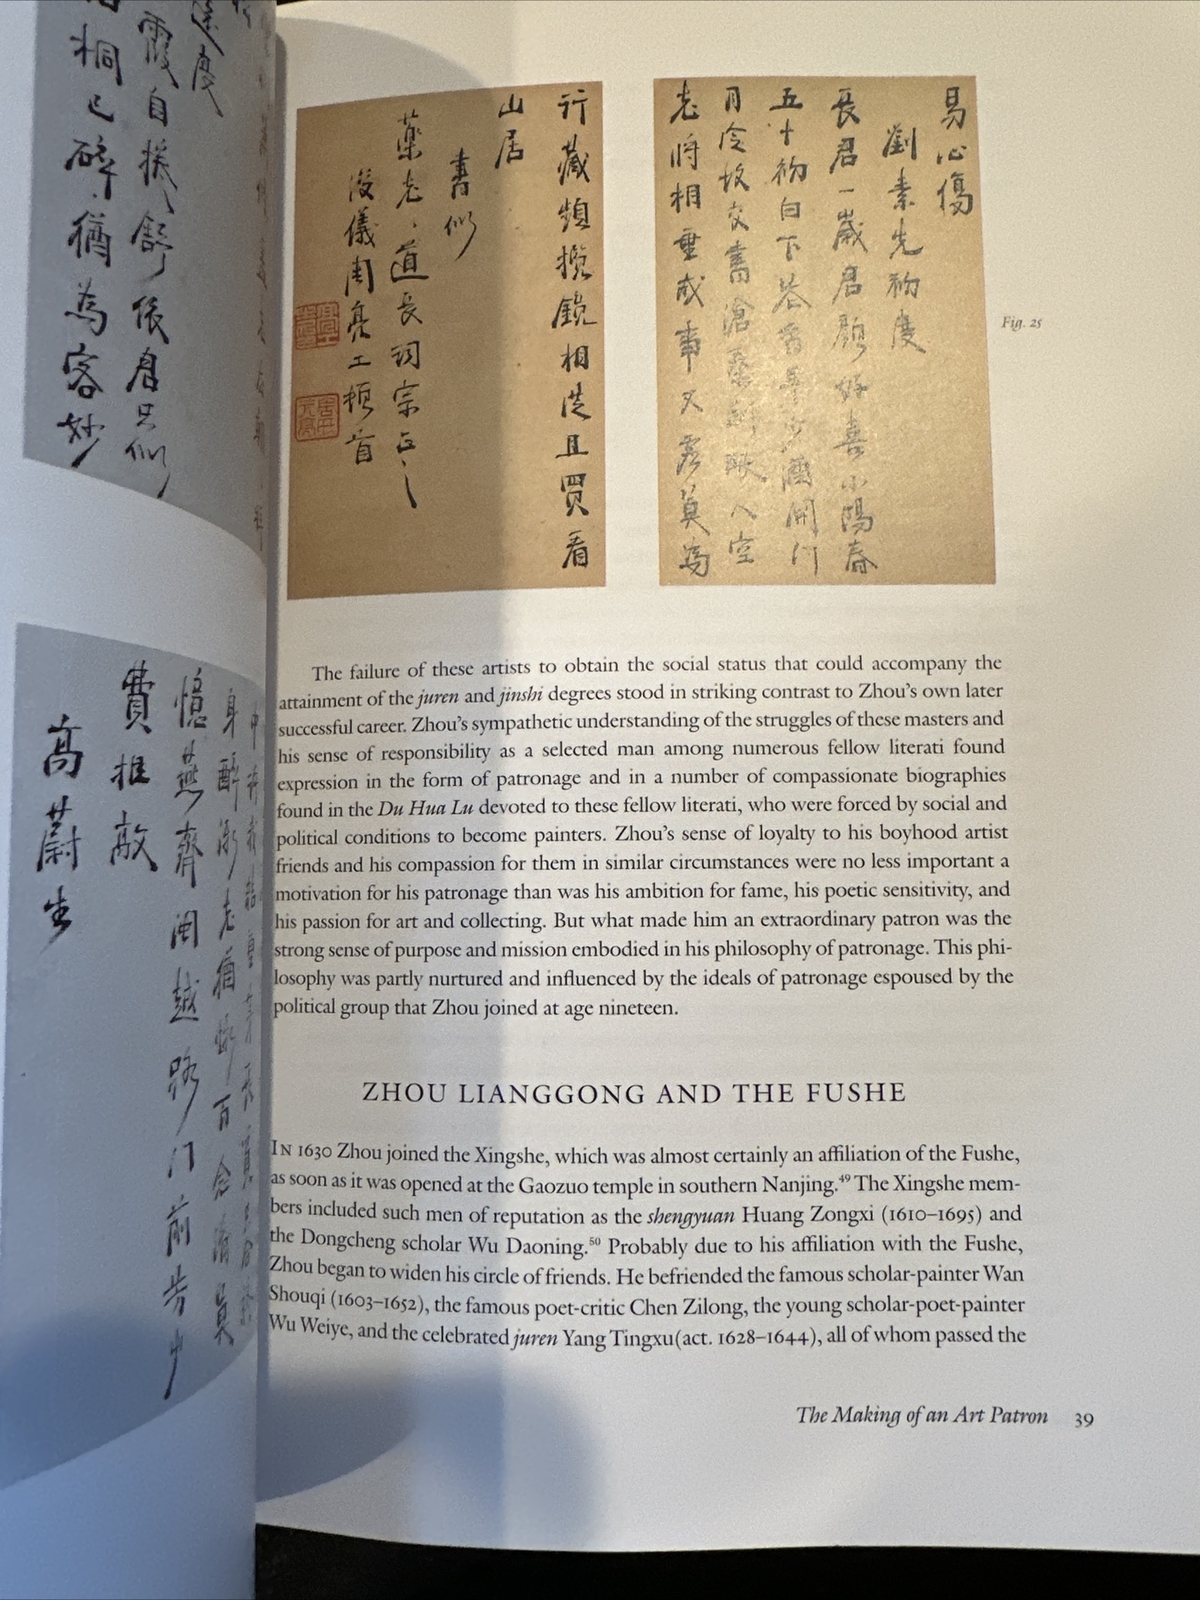 遠度
霞自
桐已碎猶為客妙
憶燕齊閩越路門前
費推敲
高蔚生
易心傷
劉素先初度
長君一歲君顏好喜小陽春
五十初白下開門
月故交書滄人空
老將相重戎事又莫為
行藏頻攬鏡相從且買看
山居
書似
藥老道長詞宗正之
浚儀周亮工頓首
Fig. 25
The failure of these artists to obtain the social status that could accompany the
attainment of the juren and jinshi degrees stood in striking contrast to Zhou's own later
successful career. Zhou's sympathetic understanding of the struggles of these masters and
his sense of responsibility as a selected man among numerous fellow literati found
expression in the form of patronage and in a number of compassionate biographies
found in the Du Hua Lu devoted to these fellow literati, who were forced by social and
political conditions to become painters. Zhou's sense of loyalty to his boyhood artist
friends and his compassion for them in similar circumstances were no less important a
motivation for his patronage than was his ambition for fame, his poetic sensitivity, and
his passion for art and collecting. But what made him an extraordinary patron was the
strong sense of purpose and mission embodied in his philosophy of patronage. This phi-
losophy was partly nurtured and influenced by the ideals of patronage espoused by the
political group that Zhou joined at age nineteen.
ZHOU LIANGGONG AND THE FUSHE
IN 1630 Zhou joined the Xingshe, which was almost certainly an affiliation of the Fushe,
as soon as it was opened at the Gaozuo temple in southern Nanjing.49 The Xingshe mem-
bers included such men of reputation as the shengyuan Huang Zongxi (1610–1695) and
the Dongcheng scholar Wu Daoning.50 Probably due to his affiliation with the Fushe,
Zhou began to widen his circle of friends. He befriended the famous scholar-painter Wan
Shouqi (1603–1652), the famous poet-critic Chen Zilong, the young scholar-poet-painter
Wu Weiye, and the celebrated juren Yang Tingxu(act. 1628–1644), all of whom passed the
The Making of an Art Patron 39